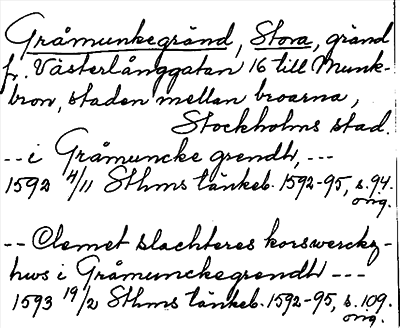 Gråmunkegränd, Stora, gränd
fr. Västerlånggatan 16 till Munk-
bron, staden mellan broarna,
Stockholms stad.
-- i Gråmuncke grendh, ---
1592 4/11 Sthms tänkeb. 1592-95, s. 94.
orig.
-- Clemet slachteres korswerckz-
hws i Gråmunckegrendh ---
1593 19/2 Sthms tänkeb. 1592-95, s. 109.
orig.